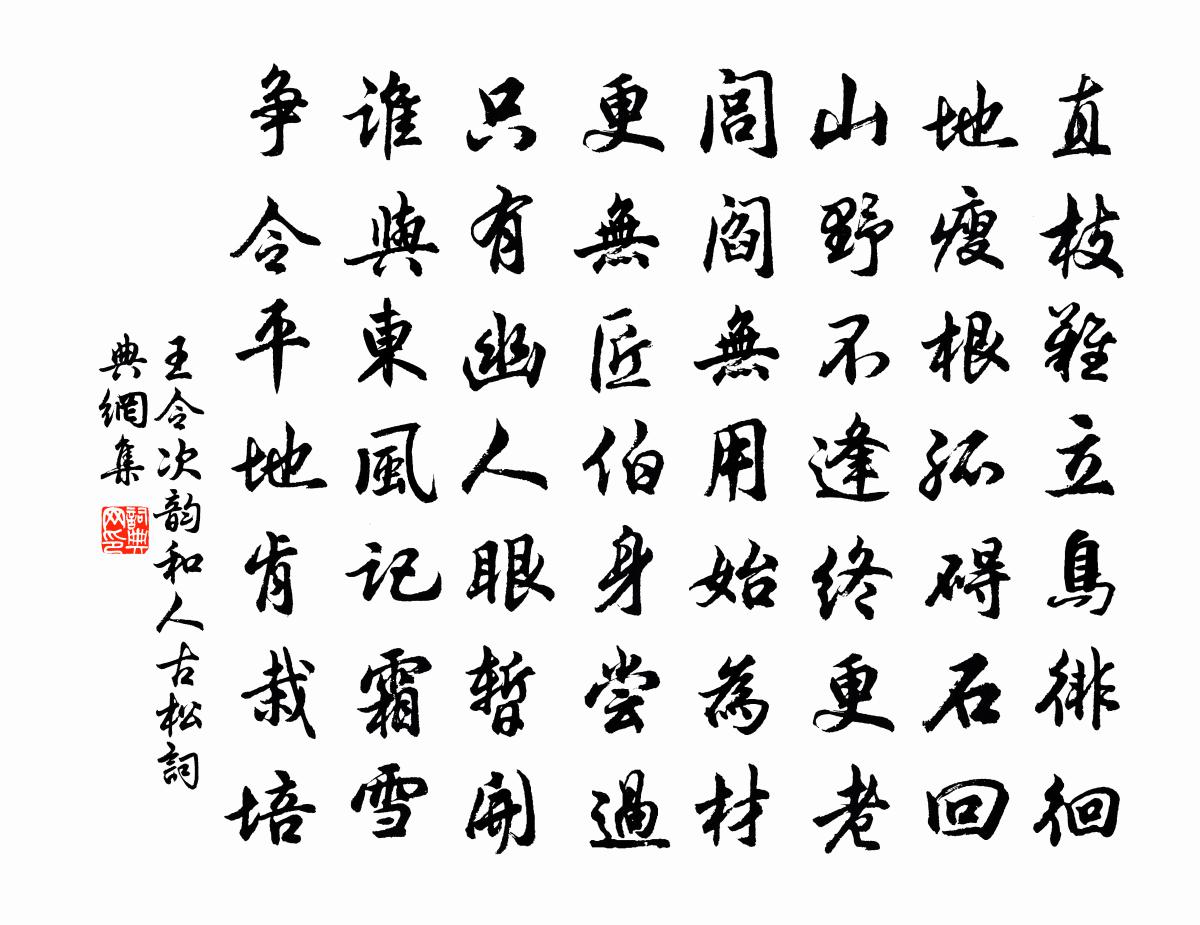 直枝難立鳥徘徊
地瘦根孤碍石回
山野不逢終更老
閭閻無用始為材
更無匠伯身嘗過
只有幽人眼暫開
誰與東風記霜雪
争令平地肯栽培
王令次韵和人古松詞
典網集
詞典
网印